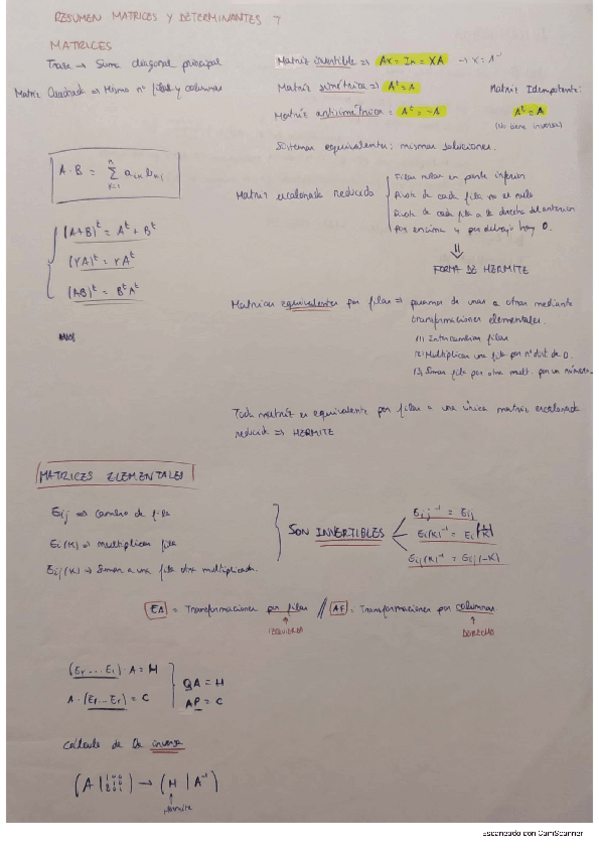 RESUMEN MATRICES Y DETERMINANTES T
MATRICES
Traza → Suma diagonal principal
Matriz Cuadrada ⇒ Mismo nº filas y columnas
A·B = Σ aik bkj
n
k=1
(A+B)^t = A^t + B^t
(γA)^t = γA^t
(AB)^t = B^t A^t
Matriz invertible ⇒ AX = In = XA → X = A^-1
Matriz simétrica ⇒ A^t = A
Matriz antisimétrica = A^t = -A
Matriz Idempotente:
A² = A
(No tiene inversa)
Sistemas equivalentes: mismas soluciones.
Matriz escalonada reducida
Filas nulas en parte inferior
Pivote de cada fila no es nulo
Pivote de cada fila a la derecha del anterior
Por encima y por debajo hay 0.
⇓
FORMA DE HERMITE
Matrices equivalentes por filas ⇒ pasamos de unas a otras mediante
transformaciones elementales.
(1) Intercambiar filas
(2) Multiplicar una fila por nº dist. de 0.
(3) Sumar fila por otra mult. por un número.
Toda matriz es equivalente por filas a una única matriz escalonada
reducida ⇒ HERMITE
MATRICES ELEMENTALES
Eij ⇒ cambio de fila
Ei(K) ⇒ multiplicar fila
Eij(K) ⇒ Sumar a una fila otra multiplicada.
SON INVERTIBLES
Eij^-1 = Eij
Ei(K)^-1 = Ei(1/K)
Eij(K)^-1 = Eij(-K)
EA = Transformaciones por filas // AE = Transformaciones por columnas
IZQUIERDA
DERECHA
(Er ... E1) · A = H
A · (E1 ... Er) = C
QA = H
AP = C
Cálculo de la inversa
(A | 1 0 0
0 1 0
0 0 1) → (H | A^-1)
Hermite
Escaneado con CamScanner